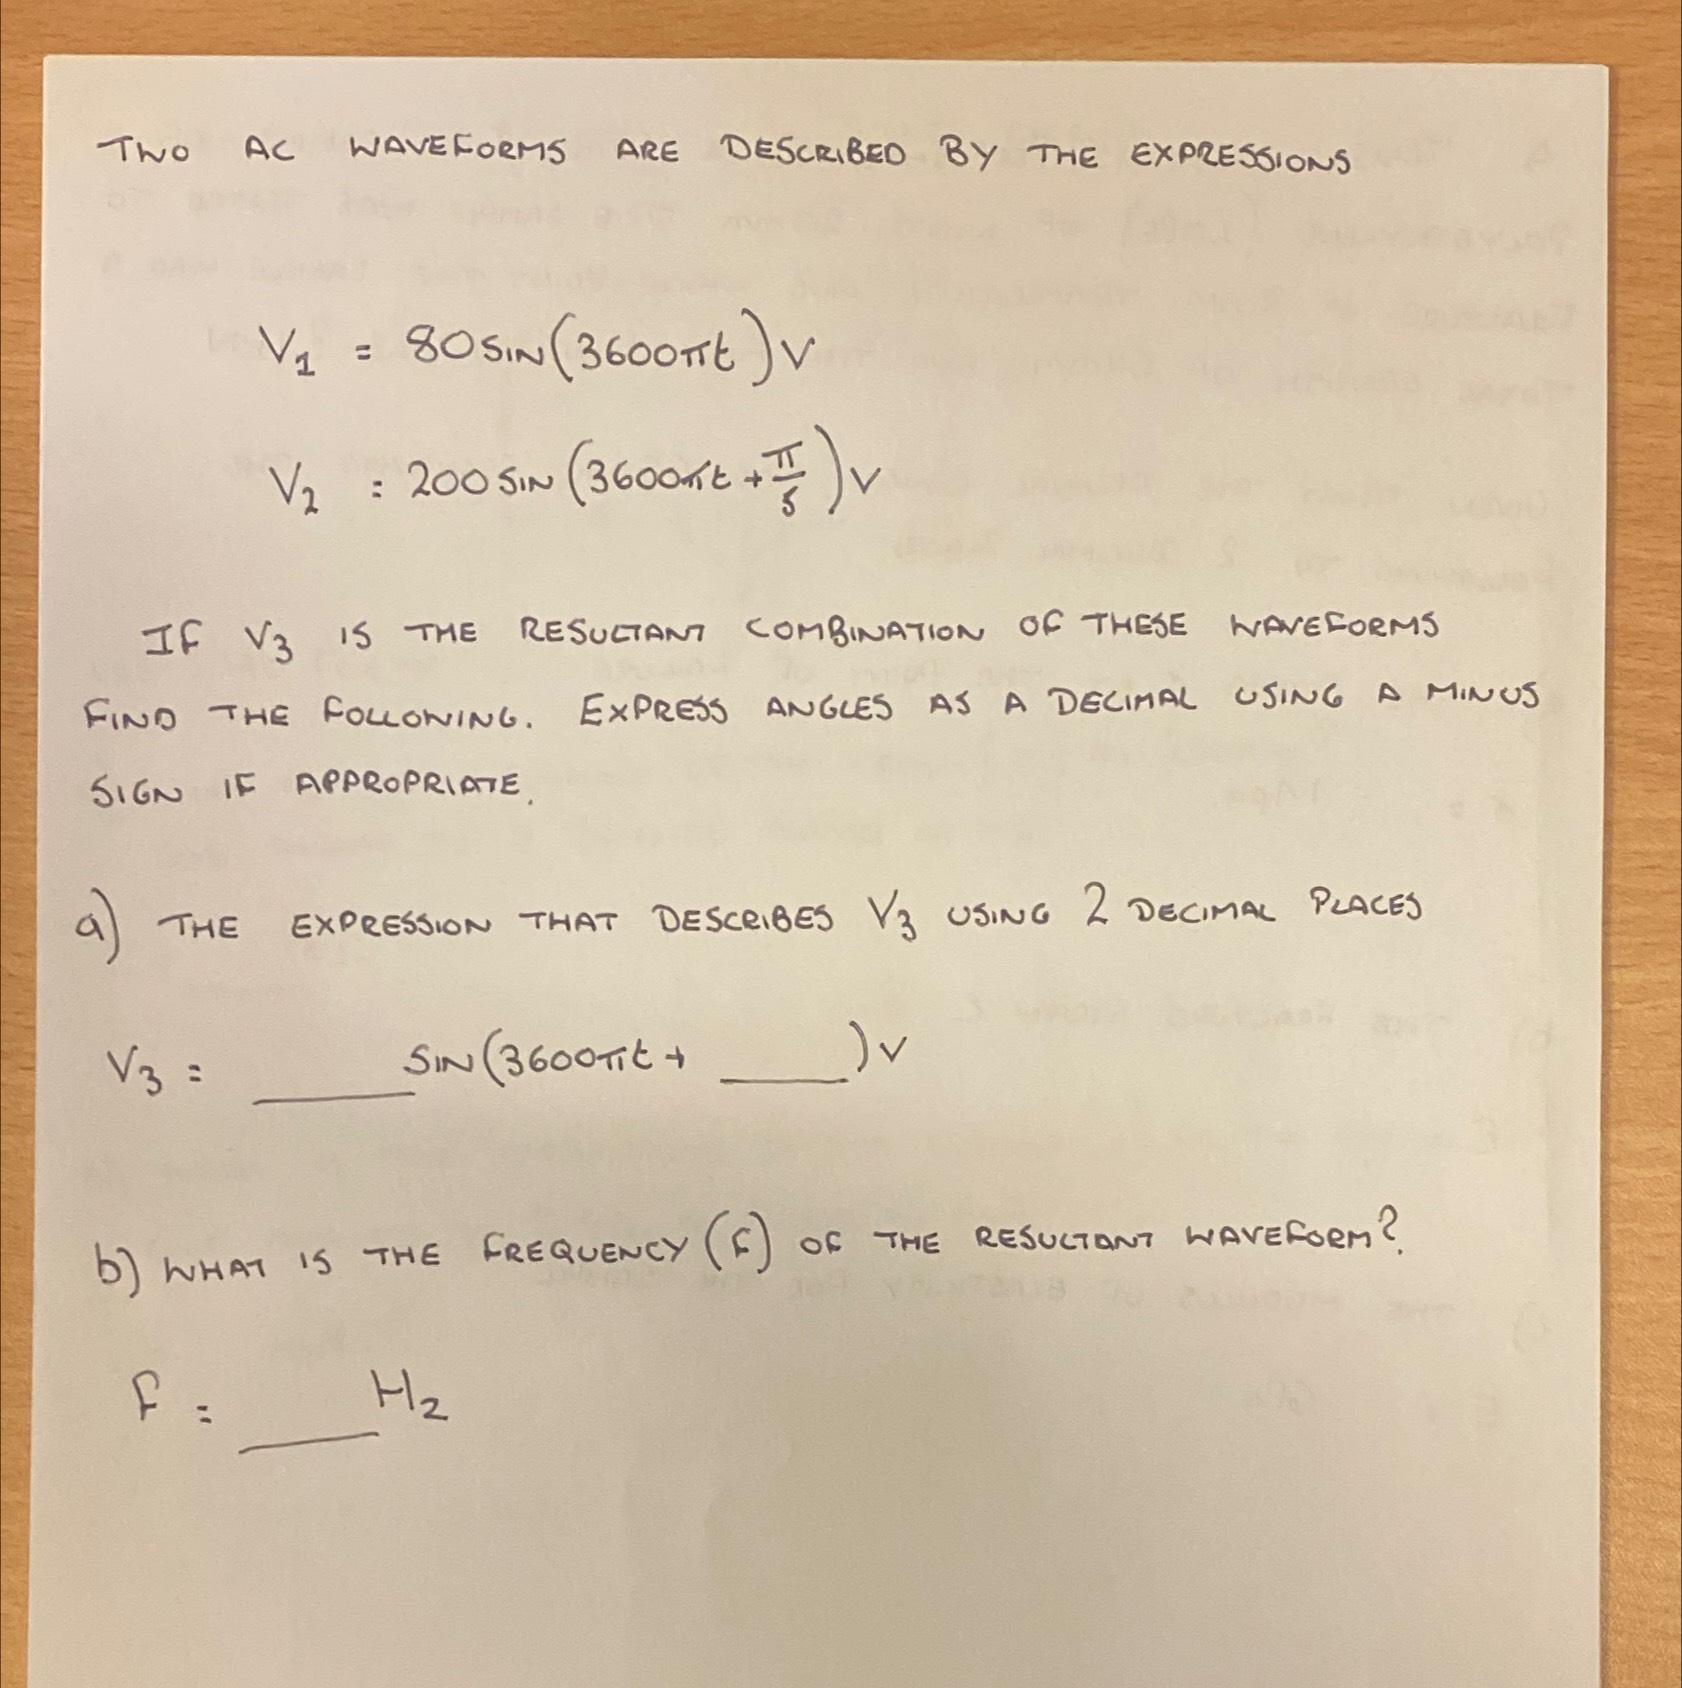 TWO AC WAVEFORMS ARE DESCRIBED BY THE EXPRESSIONS
V₁ = 80 SIN(3600πt)V
V₂ = 200 SIN(3600πt + π/5)V
IF V₃ IS THE RESULTANT COMBINATION OF THESE WAVEFORMS
FIND THE FOLLOWING. EXPRESS ANGLES AS A DECIMAL USING A MINUS
SIGN IF APPROPRIATE.
a) THE EXPRESSION THAT DESCRIBES V₃ USING 2 DECIMAL PLACES
V₃ = ____ SIN(3600πt + ____)V
b) WHAT IS THE FREQUENCY (F) OF THE RESULTANT WAVEFORM?
F = ____ HZ